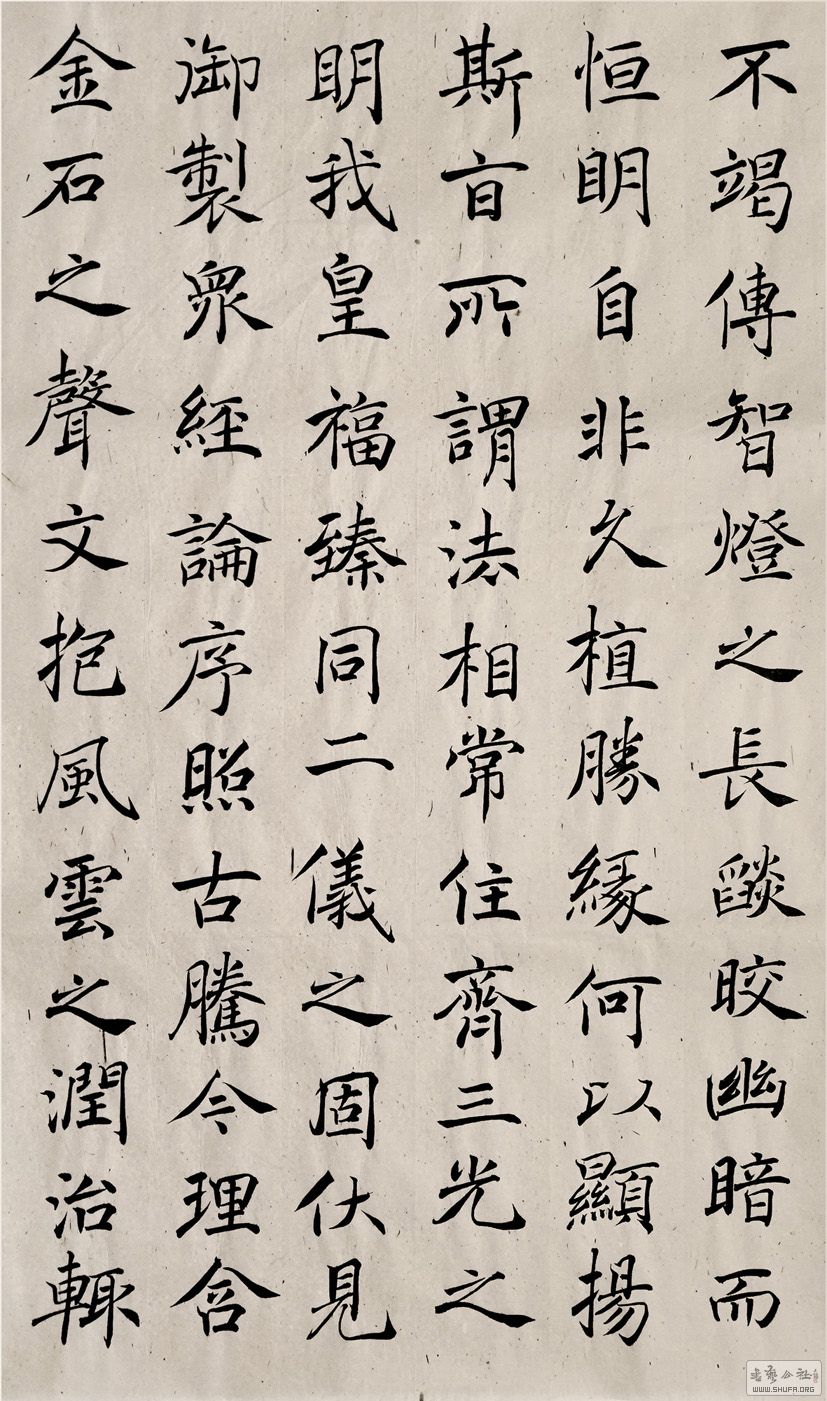 不竭傳智燈之長燄皎幽暗而
恒明自非久植勝緣何以顯揚
斯旨所謂法相常住齊三光之
明我皇福臻同二儀之固伏見
御製衆經論序照古騰今理含
金石之聲文抱風雲之潤治輒
WWW.SHUFA.ORG